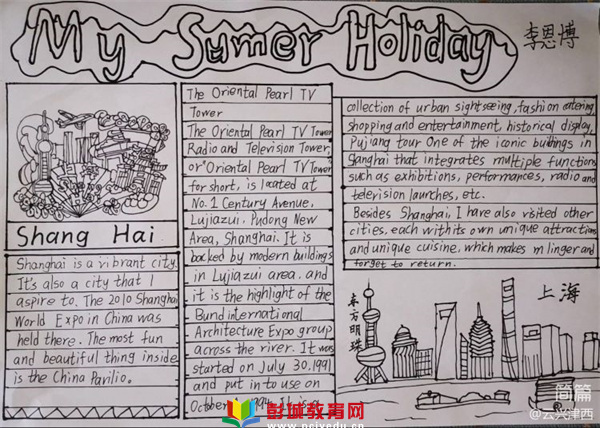 My Sumer Holiday
李恩博
Shang Hai
Shanghai is a vibrant city.
It's also a city that I
aspire to. The 2010 Shanghai
World Expo in China was
held there. The most fun
and beautiful thing inside
is the China Pavilio.
The Oriental Pearl TV
Tower
The Oriental Pearl TV Tower
Radio and Television Tower,
or "Oriental Pearl TV Tower"
for short, is located at
No. 1 Century Avenue,
Lujiazui, Pudong New
Area, Shanghai. It is
backed by modern buildings
in Lujiazui area, and
it is the highlight of the
Bund international
Architecture Expo group
across the river. It was
started on July 30, 1991
and put in to use on
October 1994. It is a
collection of urban sightseeing, fashion catering,
shopping and entertainment, historical display,
Pujiang tour One of the iconic buildings in
Shanghai that integrates multiple functions
such as exhibitions, performances, radio and
television launches, etc.
Besides Shanghai, I have also visited other
cities, each with its own unique attractions
and unique cuisine, which makes m linger and
forget to return.
东方明珠
上海
简篇
@云兴津西
彭城教育网
www.pcjyedu.cn